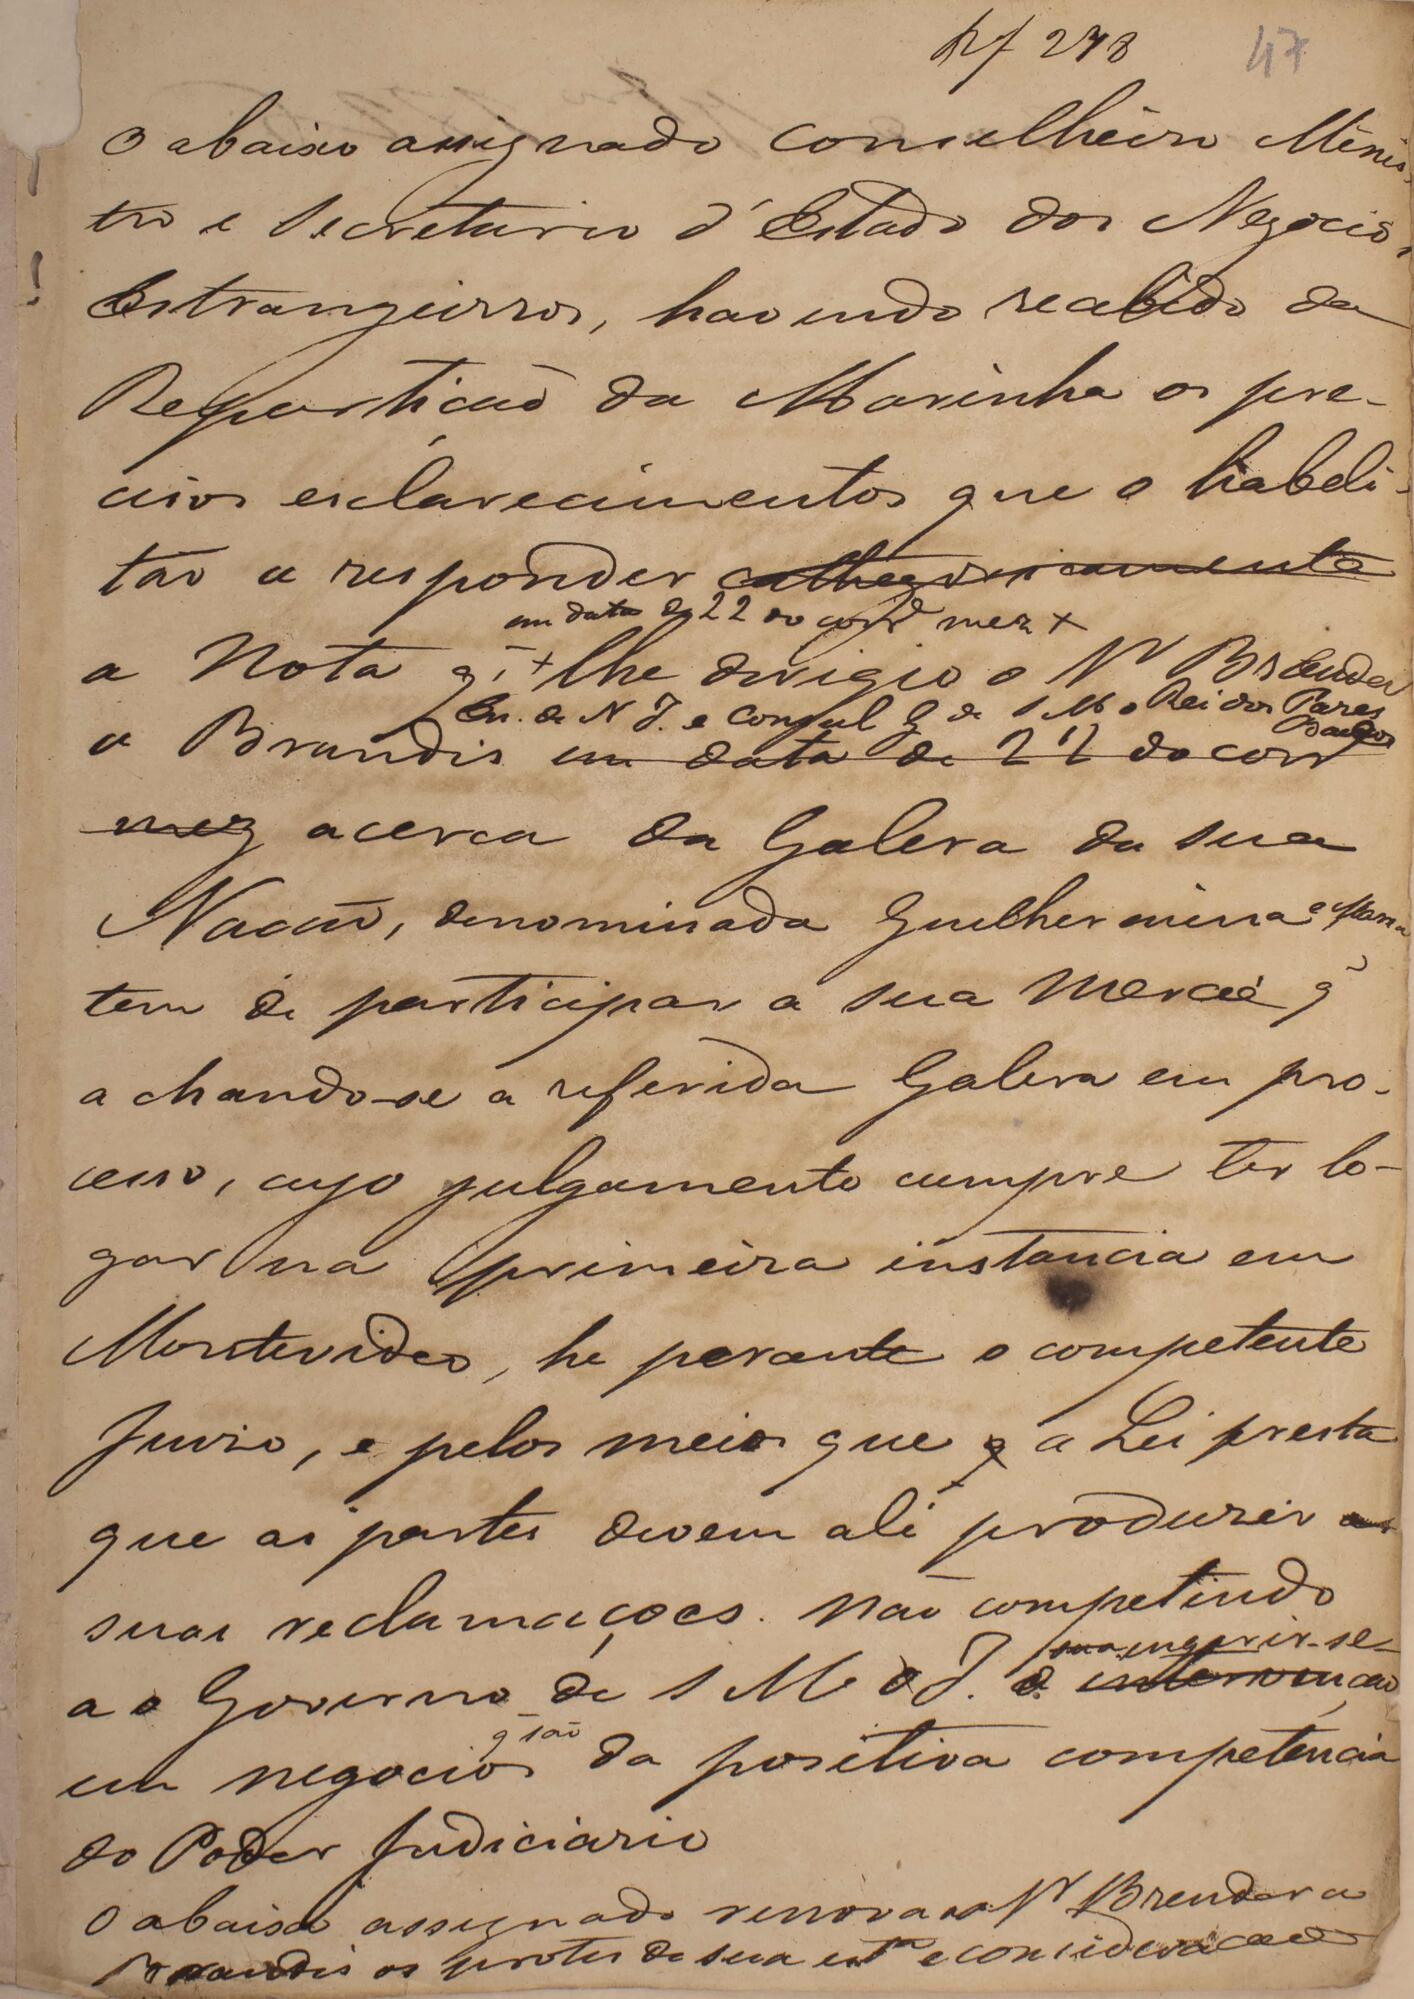 278 47
O abaixo assignado Conselheiro Minis-
tro e Secretario d'Estado dos Negocios
Estrangeiros, havendo recebido da
Repartição da Marinha os pre-
cisos esclarecimentos que o habeli-
tão a responder cathegoricamente
em data de 22 do corr.e mez +
a Nota q̃ + lhe dirigio o Sr Brender
En. de N J. e Consul G de S M o Rei dos Paizes
Baixos
a Brandis em data de 22 do corr
mez acerca da Galera da sua
Nação, denominada Guilhermina e Maria
tem de participar a sua Mercê q̃
achando-se a referida Galera em pro-
cesso, cujo julgamento cumpre ter lo-
gar na primeira instancia em
Montevideo, he perante o competente
Juizo, e pelos meios que a Lei presta
que as partes devem ali produzir as
suas reclamações. Não competindo
ingerir-se
ao Governo de S M O J. a intervenção
q̃ são
em negocios da positiva competencia
do Poder Judiciario
O abaixo assignado renova ao Sr Brender a
Brandis os protes de sua est.a e consideração